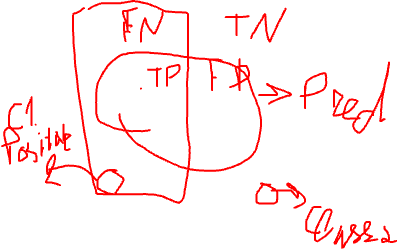 FN TN
TP FP
Pred
C1
Positive
Class2